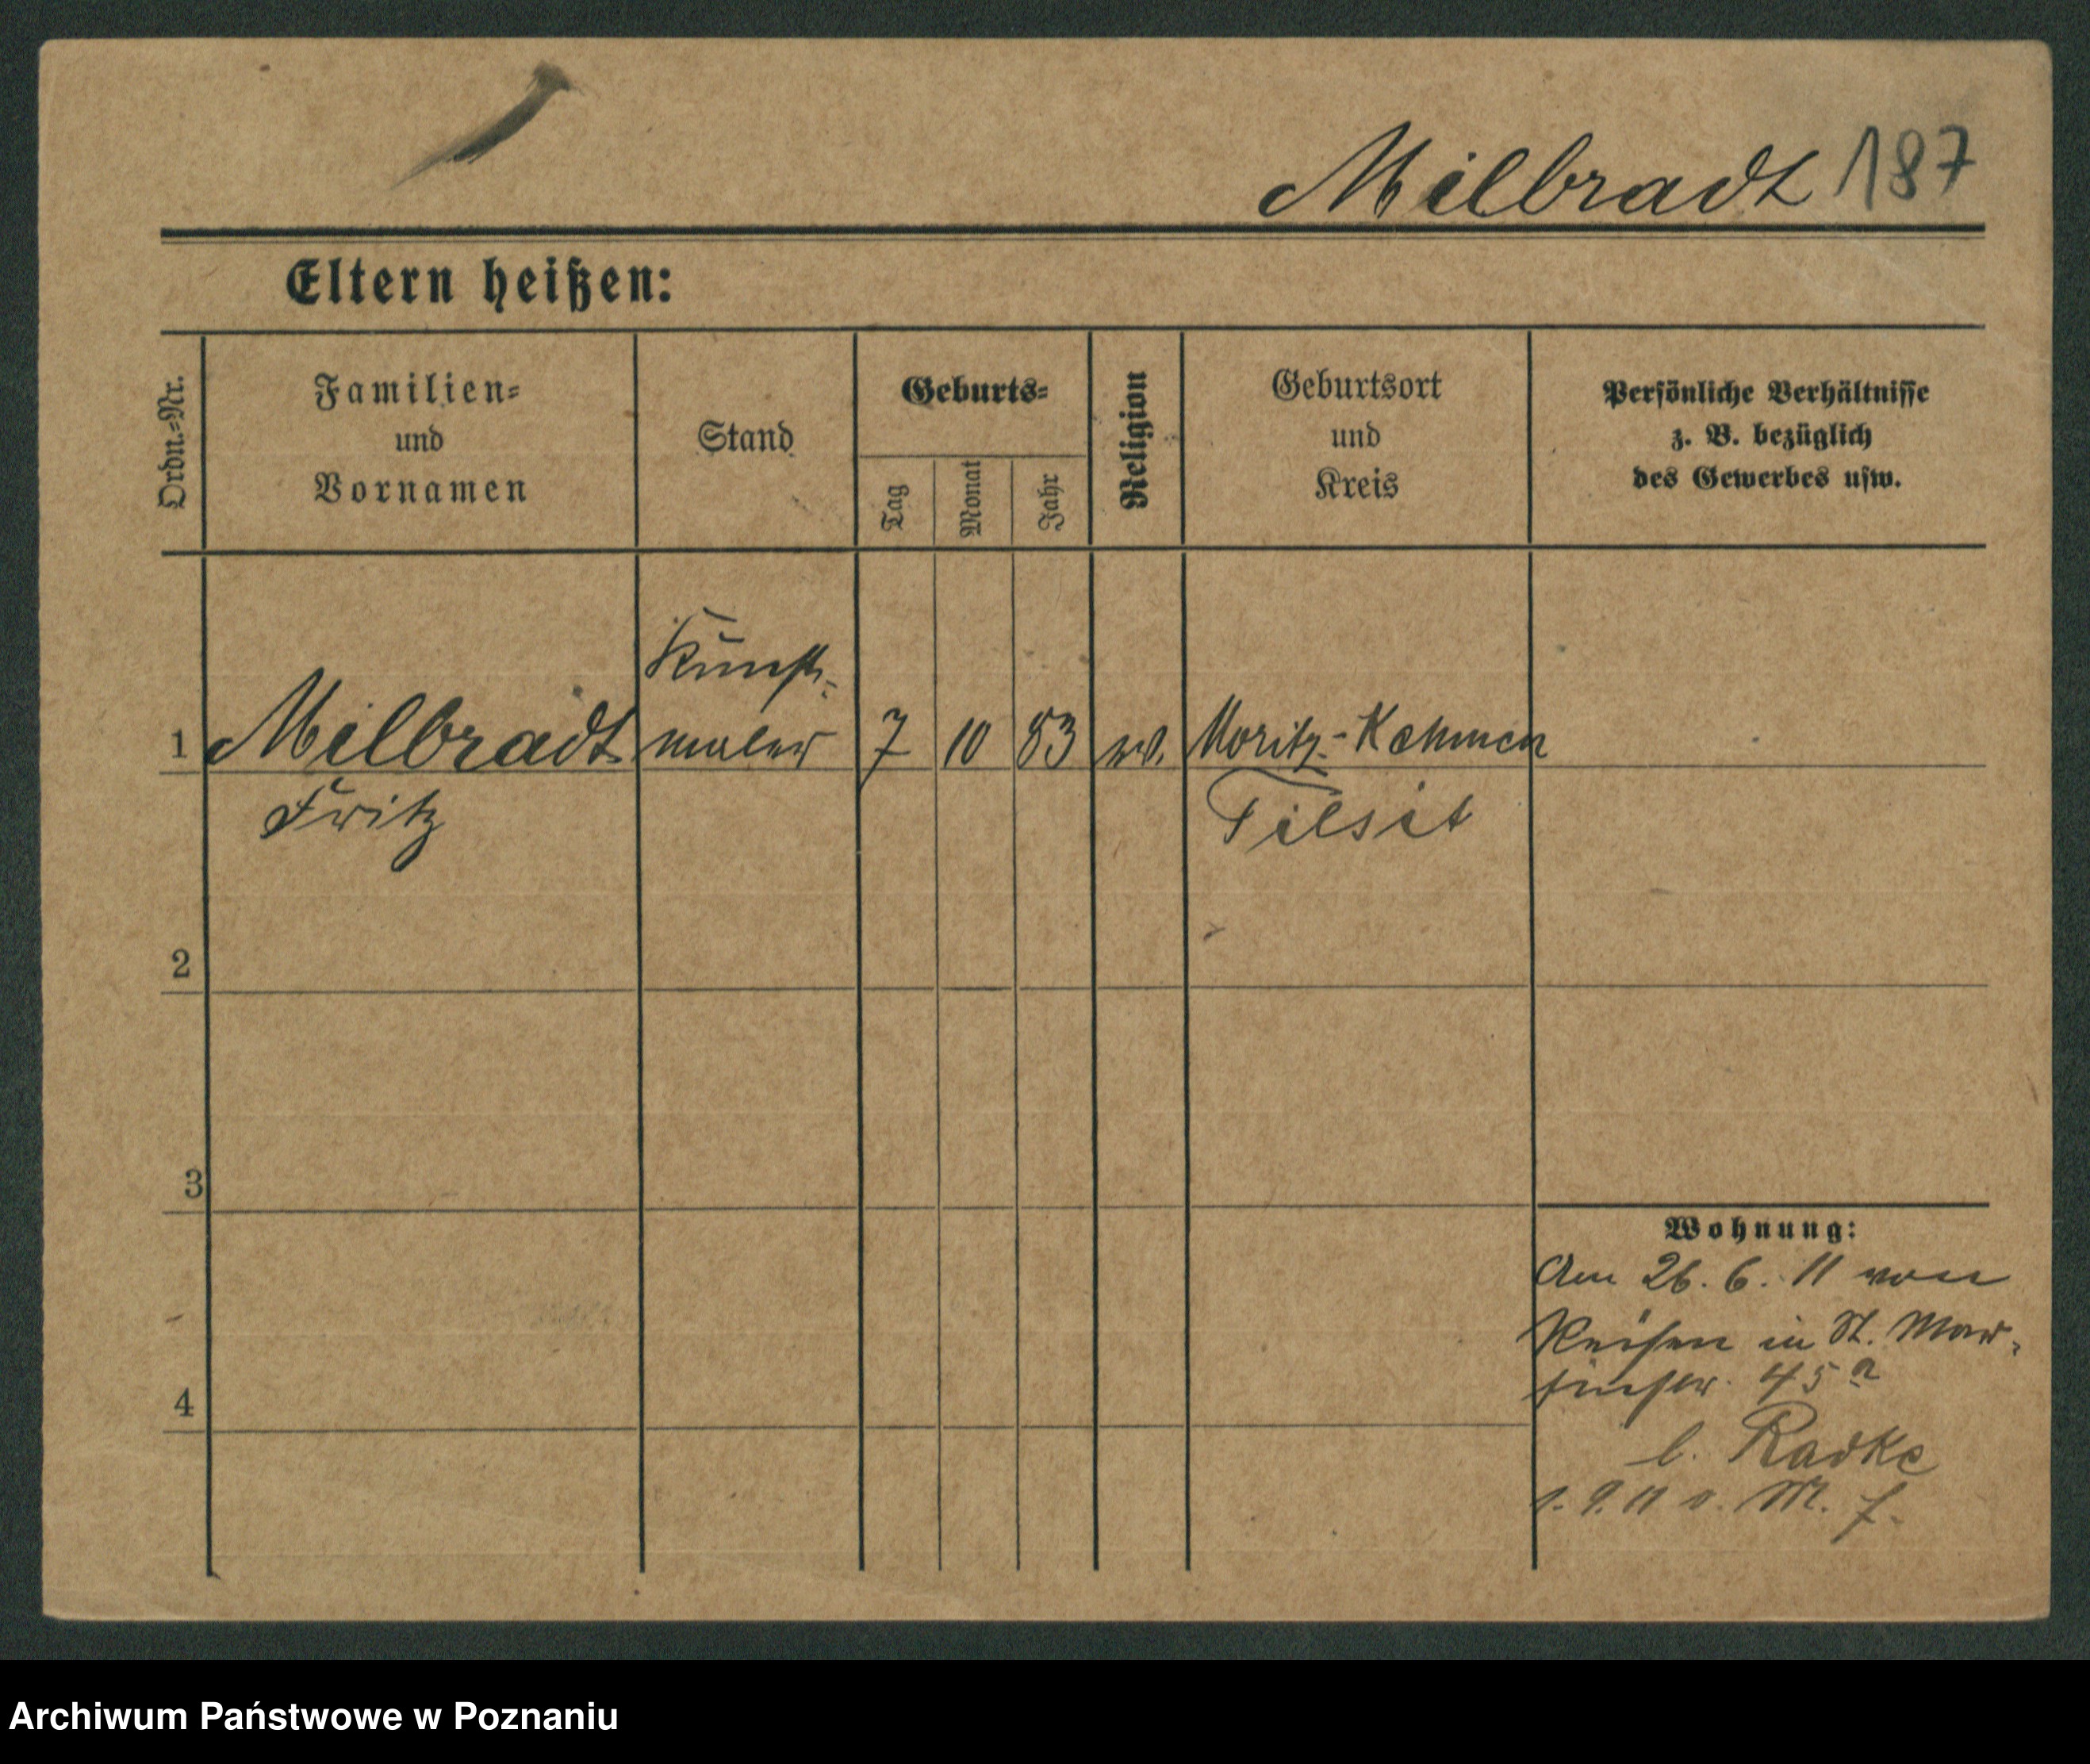 Milbradt 187
Eltern heißen:
Ordn.-Nr.
Familien-
und
Vornamen
Stand
Geburts-
Tag
Monat
Jahr
Religion
Geburtsort
und
Kreis
Persönliche Verhältnisse
z. B. bezüglich
des Gewerbes usw.
Kunst-
1 Milbradt maler 7 10 83 ev. Moritz-Kehmen
Fritz Tilsit
2
3
4
Wohnung:
Am 26. 6. 11 von
Reisen in St. Mar-
tinstr. 45a
b. Radke
1. 9. 11 v. M. f.
Archiwum Państwowe w Poznaniu